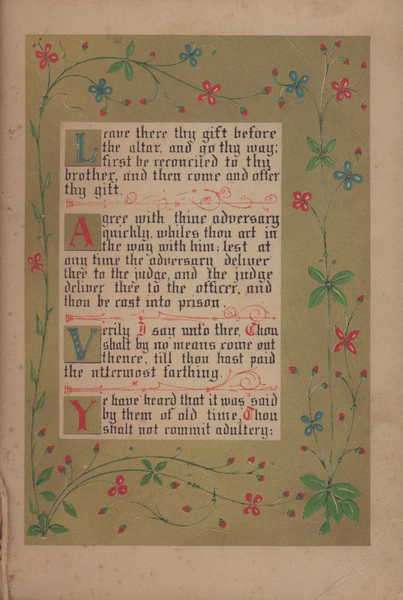 Leave there thy gift before
the altar, and go thy way;
first be reconciled to thy
brother, and then come and offer
thy gift.
Agree with thine adversary
quickly, whiles thou art in
the way with him; lest at
any time the adversary deliver
thee to the judge, and the judge
deliver thee to the officer, and
thou be cast into prison.
Verily I say unto thee, Thou
shalt by no means come out
thence, till thou hast paid
the uttermost farthing.
Ye have heard that it was said
by them of old time, Thou
shalt not commit adultery: